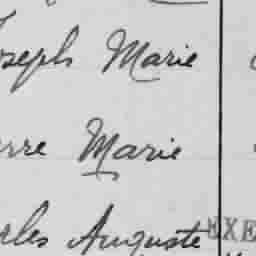 oseph Marie
erre Marie
rles Auguste EXE